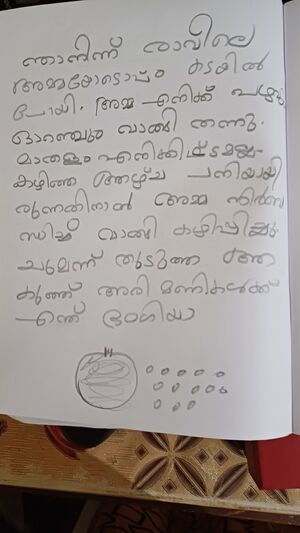 ഞാനിന്ന് രാവിലെ
അമ്മയോടൊപ്പം കടയിൽ
പോയി. അമ്മ എനിക്ക് പഴവും
ഓറഞ്ചും വാങ്ങി തന്നു.
മാതളം എനിക്കിഷ്ടമല്ല.
കഴിഞ്ഞ ആഴ്ച പനിയായി
രുന്നതിനാൽ അമ്മ നിർബ
ന്ധിച്ച് വാങ്ങി കഴിപ്പിച്ചു.
ചുമന്ന് തുടുത്ത ആ
കുഞ്ഞ് അരി മണികൾക്ക്
എന്ത് ഭംഗിയാ